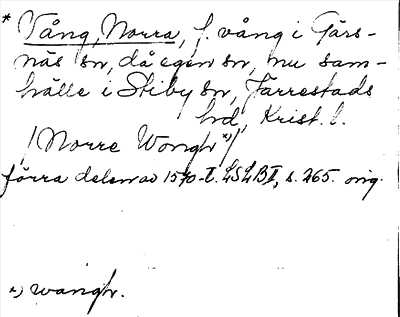 * Vång, Norra, f. vång i Gärs-
näs sn, då egen sn, nu sam-
hälle i Stiby sn, Järrestads
hrd, Krist. l.
/Norre Wongh *)/
förra delen av 1570-t. LSLB II, s. 265. orig.
*) wangh.